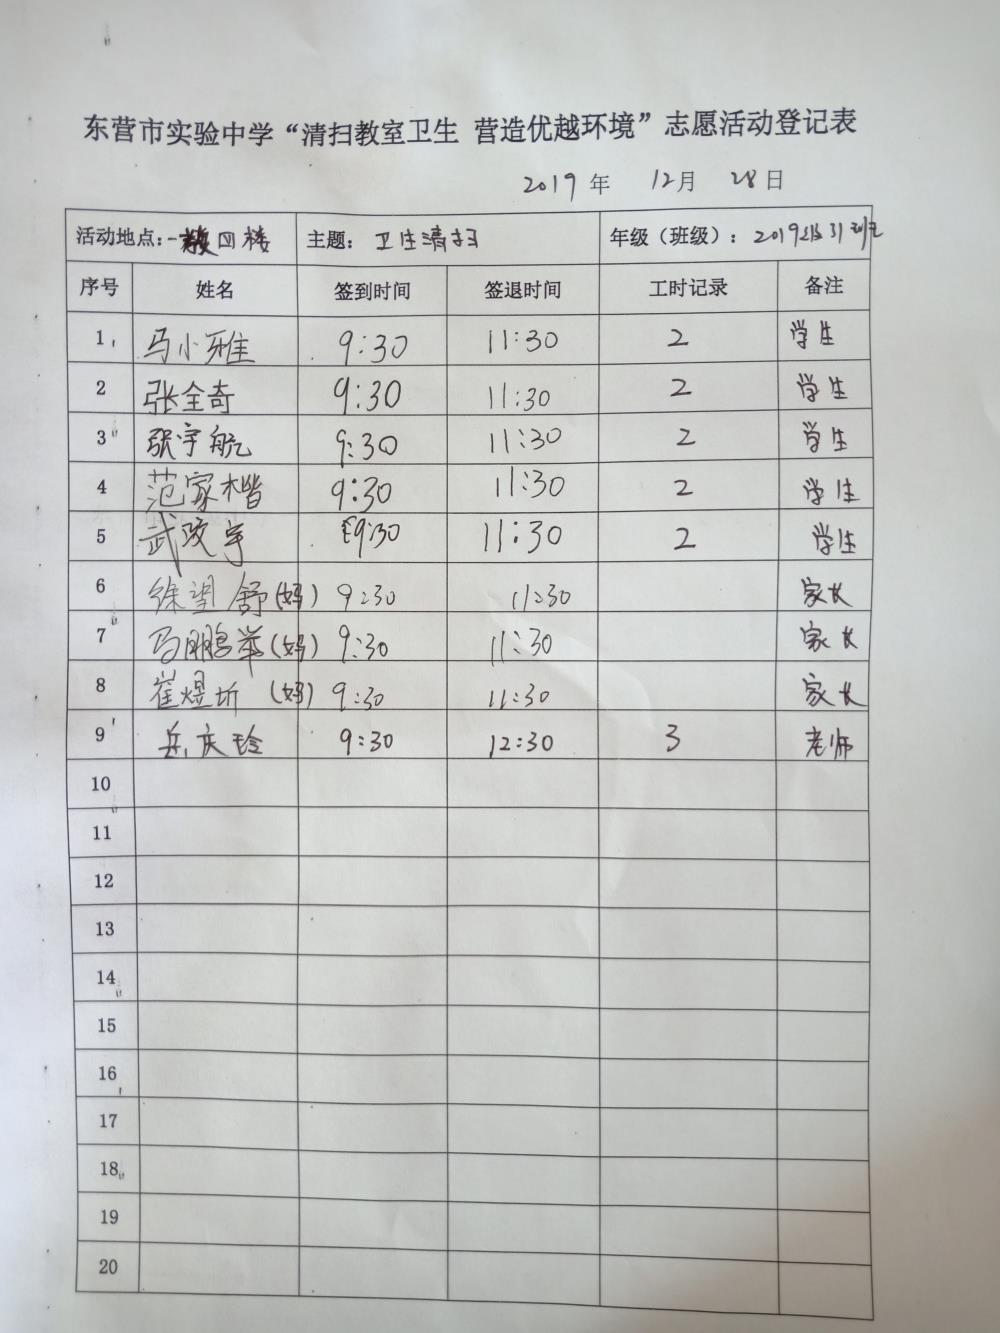 东营市实验中学“清扫教室卫生 营造优越环境”志愿活动登记表
2019 年 12月 28日
活动地点：一 四楼 主题：卫生清扫 年级（班级）：2019级31班
序号 姓名 签到时间 签退时间 工时记录 备注
1 马小雅 9:30 11:30 2 学生
2 张全奇 9:30 11:30 2 学生
3 张宇航 9:30 11:30 2 学生
4 范家楷 9:30 11:30 2 学生
5 武政宇 9:30 11:30 2 学生
6 徐望舒(妈) 9:30 11:30 家长
7 马鹏举(妈) 9:30 11:30 家长
8 崔煜圻(妈) 9:30 11:30 家长
9 岳庆玲 9:30 12:30 3 老师
10
11
12
13
14
15
16
17
18
19
20